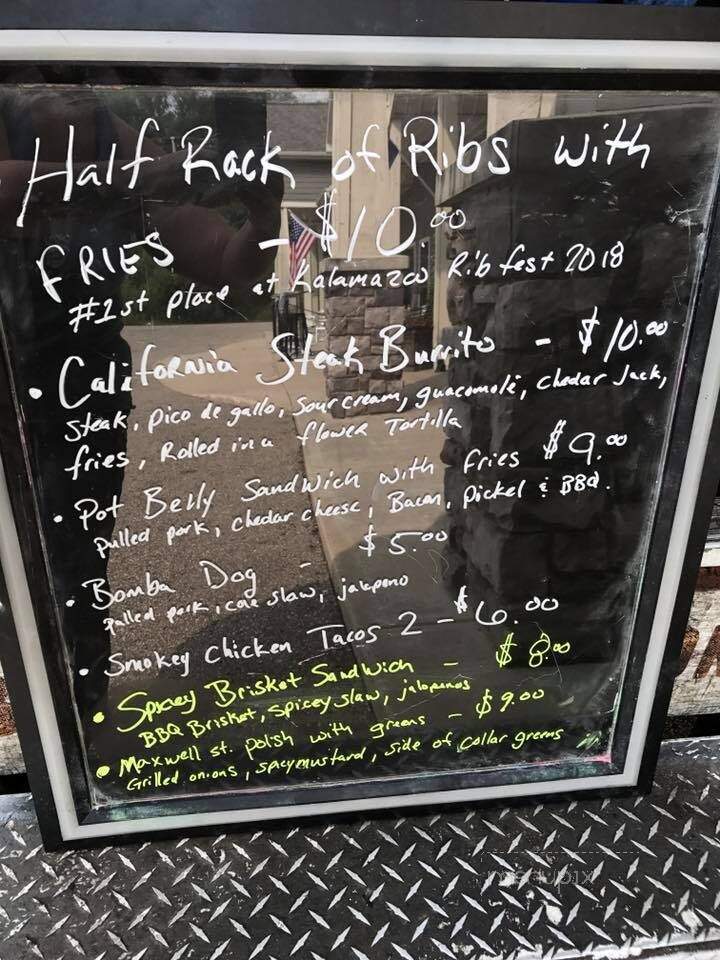 Half Rack of Ribs with
FRIES - $10.00
#1st place at Kalamazoo Rib fest 2018
• California Steak Burrito - $10.00
Steak, pico de gallo, Sour cream, guacamole, chedar Jack,
fries, Rolled in a flower Tortilla
• Pot Belly Sandwich with fries $9.00
pulled pork, chedar cheese, Bacon, pickel & BBQ.
• Bomba Dog - $5.00
pulled pork, cole slaw, jalapeno
• Smokey Chicken Tacos 2 - $6.00
• Spicey Brisket Sandwich - $8.00
BBQ Brisket, spicey slaw, jalapenos
• Maxwell st. polish with greens - $9.00
Grilled onions, spicy mustard, side of collar greens